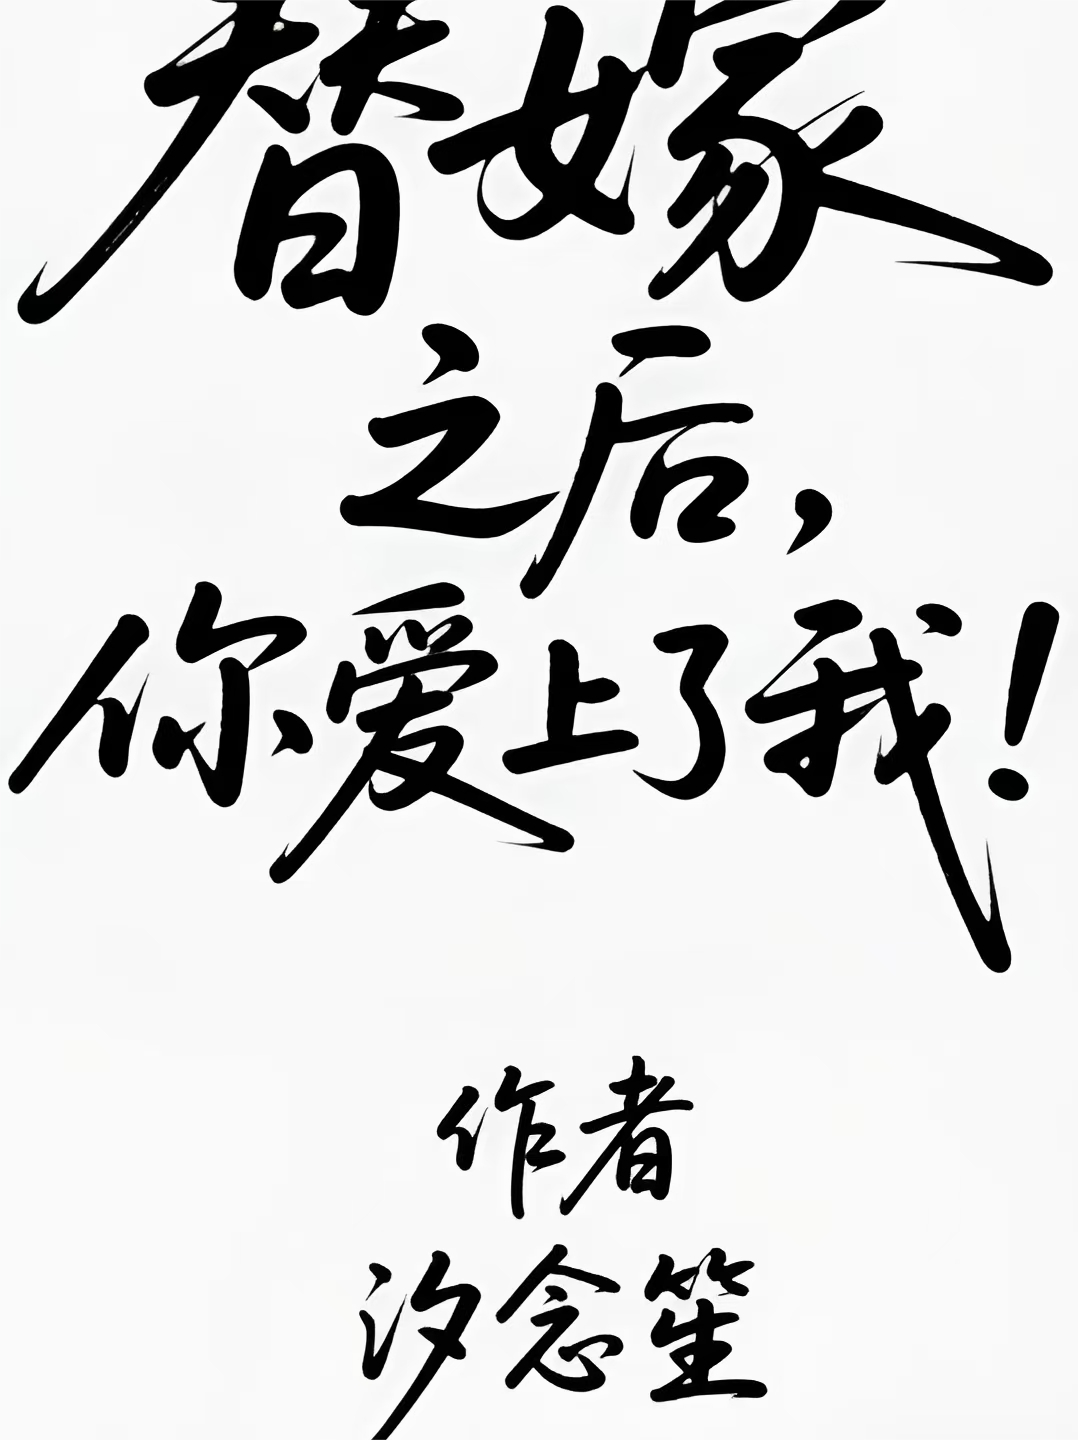 替嫁
之后，
你爱上了我！
作者
汐念笙